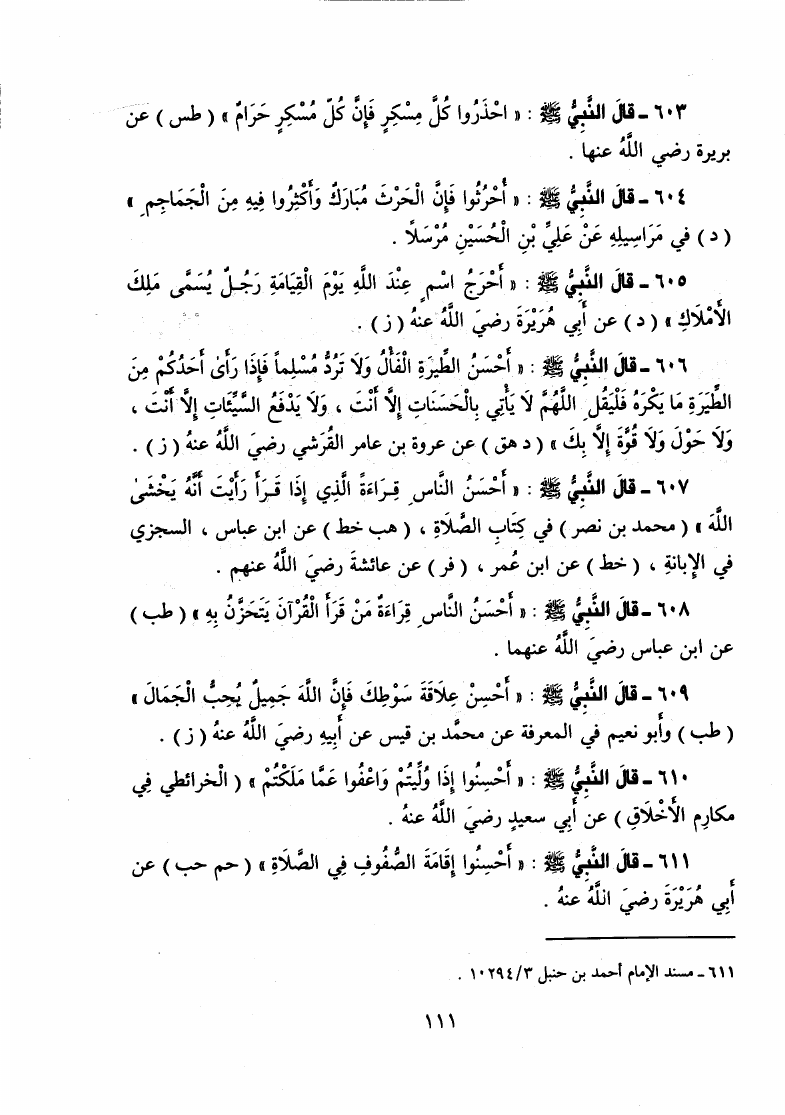 ٦٠٣ ـ قَالَ النَّبِيُّ ﷺ : « احْذَرُوا كُلَّ مِسْكِرٍ فَإِنَّ كُلَّ مُسْكِرٍ حَرَامٌ » ( طس ) عن
بريرة رضي اللَّهُ عنها .
٦٠٤ ـ قَالَ النَّبِيُّ ﷺ : « أُحْرُثُوا فَإِنَّ الْحَرْثَ مُبَارَكٌ وَأَكْثِرُوا فِيهِ مِنَ الْجَمَاجِمِ »
( د ) في مَرَاسِيلِهِ عَنْ عَلِيِّ بْنِ الْحُسَيْنِ مُرْسَلًا .
٦٠٥ ـ قَالَ النَّبِيُّ ﷺ : « أَحْرَجُ اسْمٍ عِنْدَ اللَّهِ يَوْمَ الْقِيَامَةِ رَجُلٌ يُسَمَّى مَلِكَ
الأَمْلَاكِ » ( د ) عن أَبِي هُرَيْرَةَ رضيَ اللَّهُ عنهُ ( ز ) .
٦٠٦ ـ قَالَ النَّبِيُّ ﷺ : « أَحْسَنُ الطِّيَرَةِ الْفَأْلُ وَلَا تَرُدُّ مُسْلِماً فَإِذَا رَأَىٰ أَحَدُكُمْ مِنَ
الطِّيَرَةِ مَا يَكْرَهُ فَلْيَقُلِ اللَّهُمَّ لَا يَأْتِي بِالْحَسَنَاتِ إِلَّا أَنْتَ ، وَلَا يَدْفَعُ السَّيِّئَاتِ إِلَّا أَنْتَ ،
وَلَا حَوْلَ وَلَا قُوَّةَ إِلَّا بِكَ » ( د هق ) عن عروة بن عامر القُرَشي رضيَ اللَّهُ عنهُ ( ز ) .
٦٠٧ ـ قَالَ النَّبِيُّ ﷺ : « أَحْسَنُ النَّاسِ قِرَاءَةً الَّذِي إِذَا قَرَأَ رَأَيْتَ أَنَّهُ يَخْشَىٰ
اللَّهَ » ( محمد بن نصر ) في كِتَابِ الصَّلَاةِ ، ( هب خط ) عن ابن عباس ، السجزي
في الإبانةِ ، ( خط ) عن ابن عُمر ، ( فر ) عن عائشةَ رضيَ اللَّهُ عنهم .
٦٠٨ ـ قَالَ النَّبِيُّ ﷺ : « أَحْسَنُ النَّاسِ قِرَاءَةً مَنْ قَرَأَ الْقُرْآنَ يَتَحَزَّنُ بِهِ » ( طب )
عن ابن عباس رضيَ اللَّهُ عنهما .
٦٠٩ ـ قَالَ النَّبِيُّ ﷺ : « أَحْسِنْ عِلَاقَةَ سَوْطِكَ فَإِنَّ اللَّهَ جَمِيلٌ يُحِبُّ الْجَمَالَ »
( طب ) وأَبو نعيم في المعرفة عن محمَّد بن قيس عن أَبِيهِ رضيَ اللَّهُ عنهُ ( ز ) .
٦١٠ ـ قَالَ النَّبِيُّ ﷺ : « أَحْسِنُوا إِذَا وُلِّيتُمْ وَاعْفُوا عَمَّا مَلَكْتُمْ » ( الْخرائطي في
مكارِمِ الأَخْلَاقِ ) عن أَبي سعيدٍ رضيَ اللَّهُ عنهُ .
٦١١ ـ قَالَ النَّبِيُّ ﷺ : « أَحْسِنُوا إِقَامَةَ الصُّفُوفِ فِي الصَّلَاةِ » ( حم حب ) عن
أَبِي هُرَيْرَةَ رضيَ اللَّهُ عنهُ .
٦١١ ـ مسند الإمام أحمد بن حنبل ١٠٢٩٤/٣ .
١١١